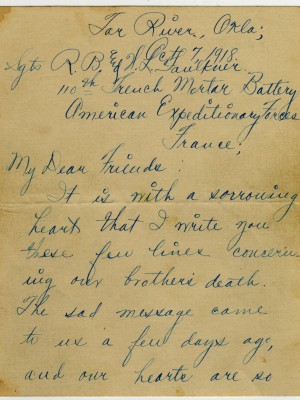 Tar River, Okla;
Oct 7, 1918.
Sgts R.B. & W.L. Faulkner
110th, Trench Mortar Battery
American Expeditionary Forces
France;
My Dear Friends:
It is with a sorrowing
heart that I write you
these few lines concern
ing our brothers death.
The sad message came
to us a few days ago,
and our hearts are so